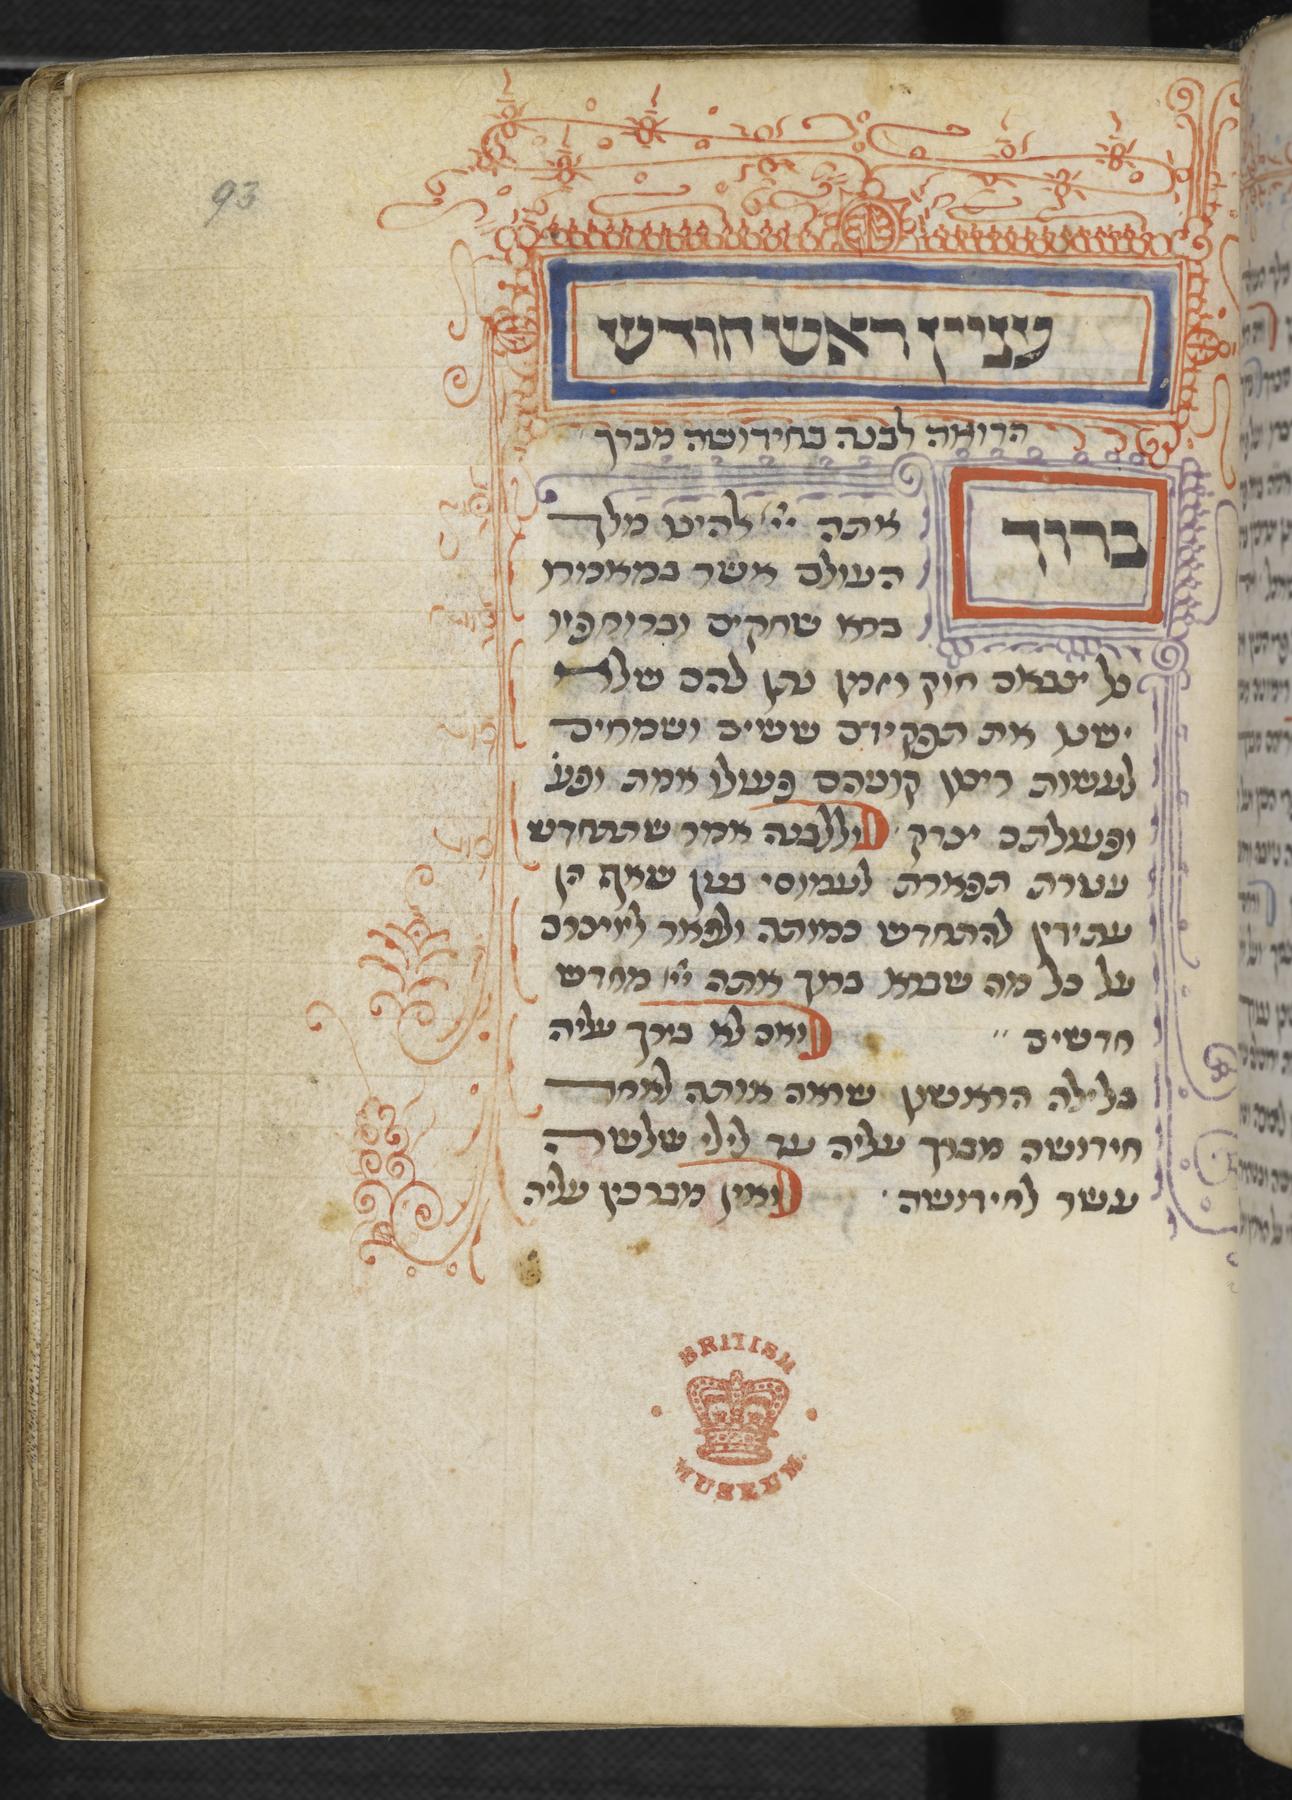 93
עניין ראש חודש
הרואה לבנה בחידושה מברך
ברוך
אתה יי׳ אלהינו מלך
העולם אשר במאמרו
ברא שחקים וברוח פיו
כל צבאם חוק וזמן נתן להם שלא
ישנו את תפקידם ששים ושמחים
לעשות רצון קוניהם פועלו אמת ופע׳
ופעולתם צדק וללבנה אמר שתתחדש
עטרת תפארת לעמוסי בטן שאף הן
עתידין להתחדש כמותה ולפאר ליוצרם
על כל מה שברא ברוך אתה יי׳ מחדש
חדשים ואם לא בירך עליה
בלילה הראשון שראה אותה לאחר
חידושה מברך עליה עד לילי שלשה
עשר לחידושה ואין מברכין עליה
BRITISH
MUSEUM